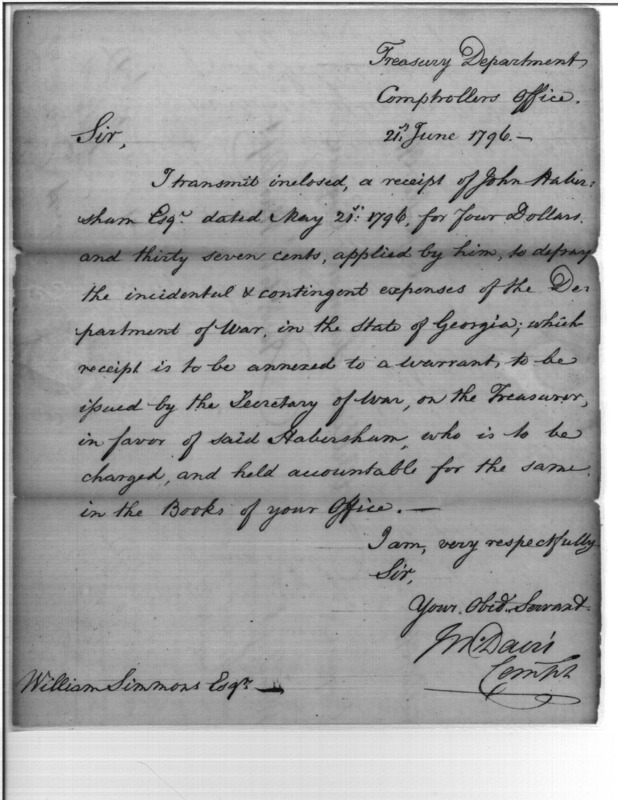 Treasury Department,
Comptrollers Office.
21st June 1796.—
Sir,
I transmit inclosed, a receipt of John Haber-
sham Esqr. dated May 21st: 1796, for four Dollars.
and thirty seven cents, applied by him, to defray
the incidental & contingent expenses of the De-
partment of War, in the State of Georgia; which
receipt is to be annexed to a warrant, to be
issued by the Secretary of War, on the Treasurer,
in favor of said Habersham, who is to be
charged, and held accountable for the same.
in the Books of your Office.—
I am, very respectfully
Sir,
Your Obedt. Servant.
Davis
Compt
William Simmons Esqr.—